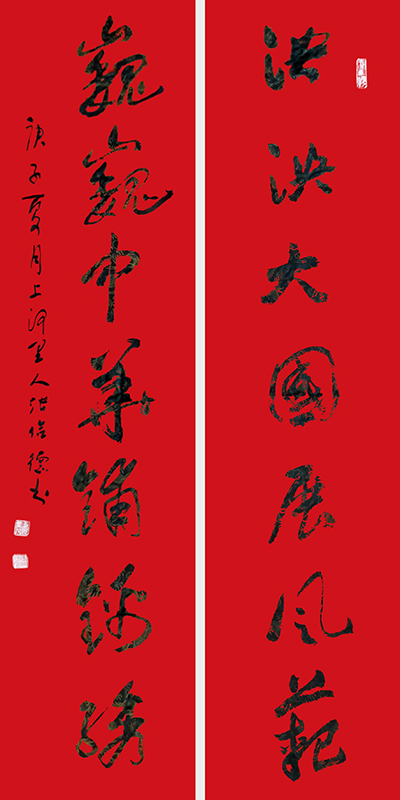 泱泱大國展风範
巍巍中華鋪錦繡
庚子夏月上河里人張信德书